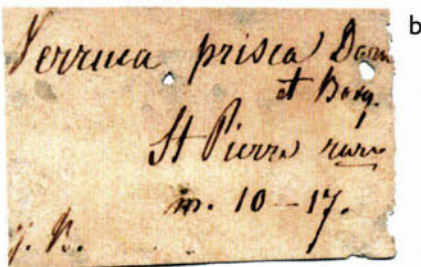 Verruca prisca Darw
b
et Bosq.
St Pierre rare
m. 10 – 17.
J. B.